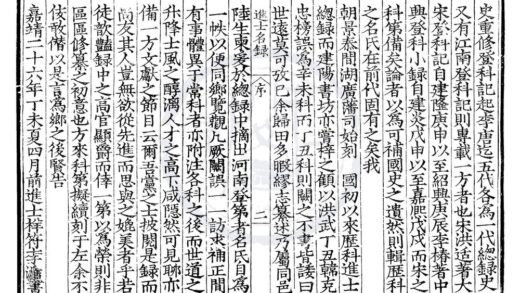 史重修登科記起李唐迄五代各為一代總錄史
又有江南登科記則專載一方者也宋洪适著大
宋登科記自建隆庚申以至紹興庚辰李椿著中
興登科小錄自建炎戊申以至嘉熙戊戌而宋之
科第備矣論者以為可補國史之遺然則輯歷科
之名氏在前代固有之矣我
朝景泰間湖廣藩司始刻 國初以來歷科進士
總錄而建陽書坊亦嘗梓之顧以洪武丁丑韓克
忠榜誤為辛未科而丁丑科則闕之不書皆諉曰
世遠莫可攷已余歸田多暇繆志纂述乃屬同邑
進士名錄 序 二
陸生東爰於總錄中摘出河南登第者名氏自為
一帙以便同鄉覽觀凡厥闕誤一一訪求補正間
有事體異于常科者亦附注各科之後而世道之
升降士風之醇漓人才之高下咸隱然可見聊亦
備一方文獻之節目云爾吾黨之士披閱是錄而
尚友其人豈無欲從先進而思與之媲美者乎若
徒歆豔錄中之高官顯爵而倖一第以為榮則非
區區修纂之初意也方來科第擬續刻于左余不
佞敢僭以是言為鄉之後賢告
嘉靖二十六年丁未夏四月前進士祥符李濂書